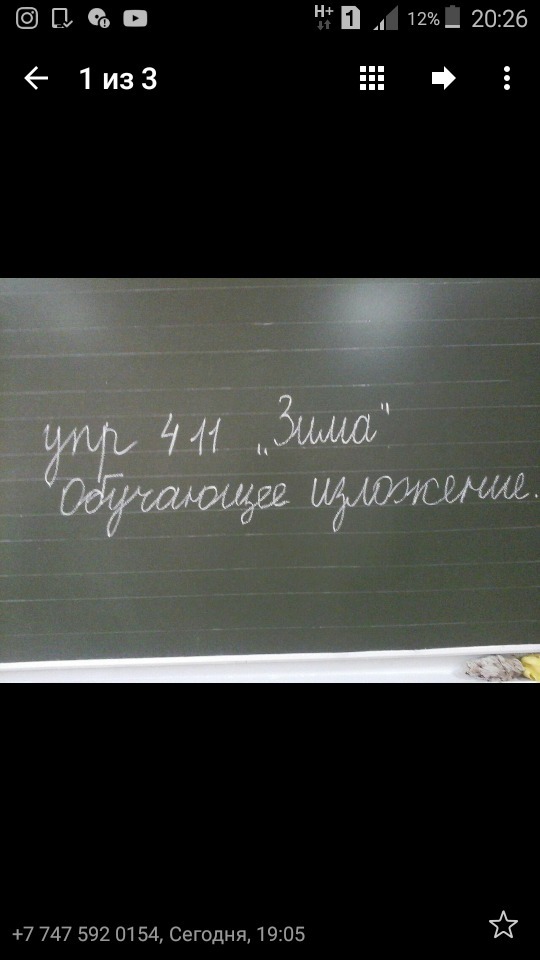 H+ 1 12% 20:26
1 из 3
упр 411 „Зима"
Обучающее изложение.
+7 747 592 0154, Сегодня, 19:05